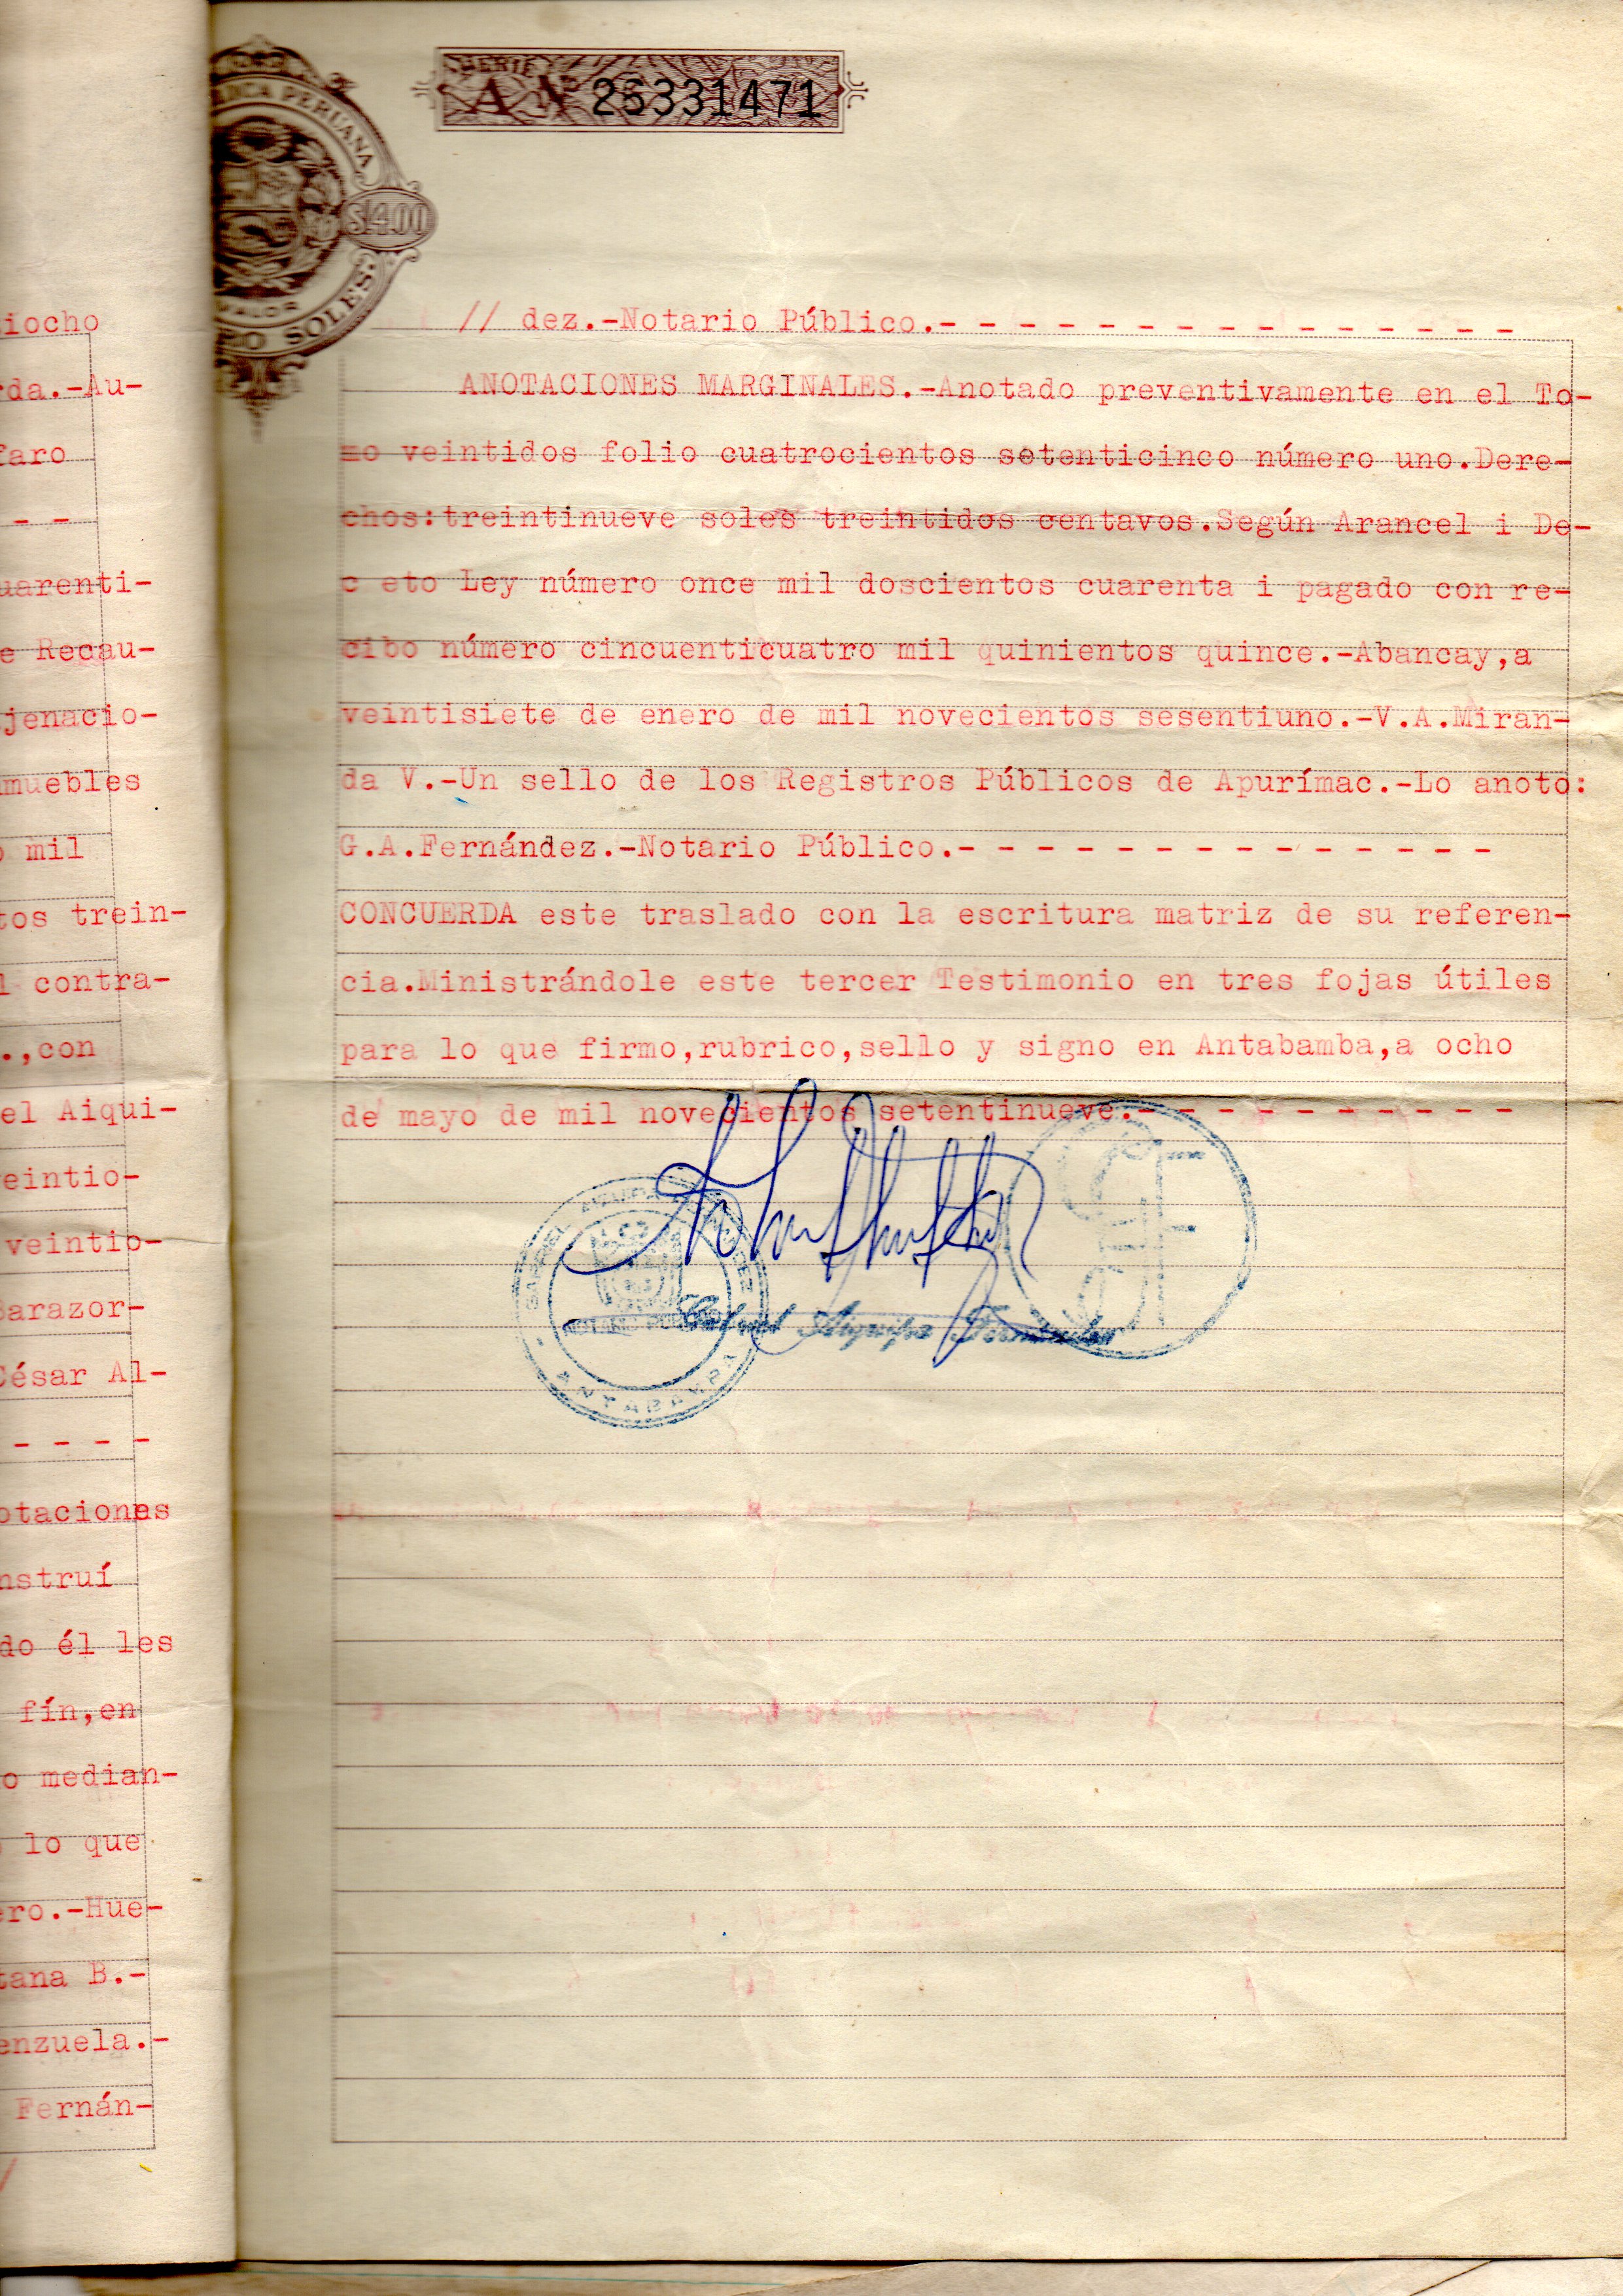 iocho
rda.-Au-
faro
- - 
uarenti-
e Recau-
jenacio-
muebles
o mil
tos trein-
l contra-
.,con
el Aiqui-
eintio-
veintio-
Barazor-
César Al-
- - - -
otaciones
nstruí
do él les
fín,en
o median-
lo que
ero.-Hue-
tana B.-
enzuela.-
Fernán-
/
PERUANA
S/4.00
VALOR
SOLES
SERIE
A Nº 26331471
// dez.-Notario Público.- - - - - - - - - - - - - - -
ANOTACIONES MARGINALES.-Anotado preventivamente en el To-
mo veintidos folio cuatrocientos setenticinco número uno.Dere-
chos:treintinueve soles treintidos centavos.Según Arancel i De-
c eto Ley número once mil doscientos cuarenta i pagado con re-
cibo número cincuenticuatro mil quinientos quince.-Abancay,a
veintisiete de enero de mil novecientos sesentiuno.-V.A.Miran-
da V.-Un sello de los Registros Públicos de Apurímac.-Lo anoto:
G.A.Fernández.-Notario Público.- - - - - - - - - - - - - -
CONCUERDA este traslado con la escritura matriz de su referen-
cia.Ministrándole este tercer Testimonio en tres fojas útiles
para lo que firmo,rubrico,sello y signo en Antabamba,a ocho
de mayo de mil novecientos setentinueve.- - - - - - - - - -
GABRIEL
NOTARIO
ANTABAMBA
Gabriel Aiquipa Fernández